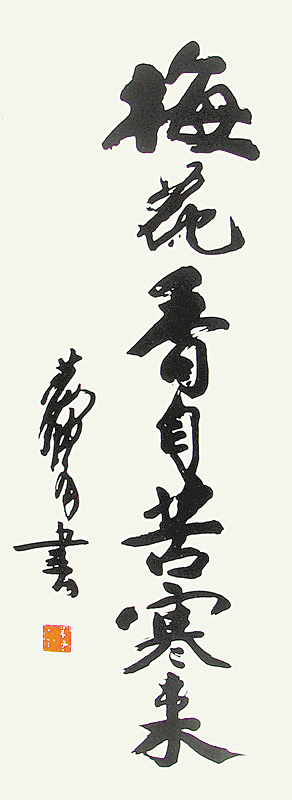 梅花香自苦寒来
書